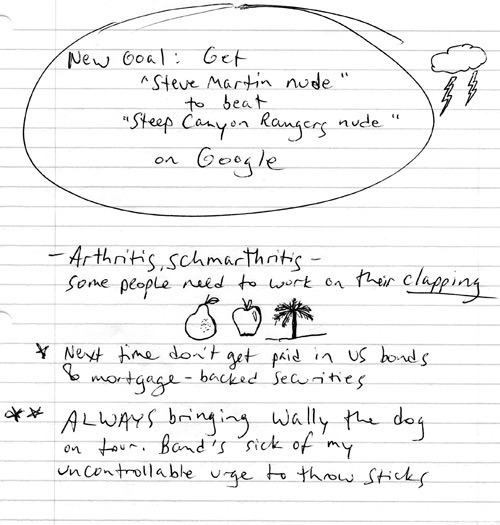 New Goal: Get
"Steve Martin nude"
to beat
"Steep Canyon Rangers nude"
on Google
- Arthritis, schmarthritis -
some people need to work on their clapping
* Next time don't get paid in US bonds
& mortgage-backed securities
** ALWAYS bringing Wally the dog
on tour. Band's sick of my
uncontrollable urge to throw sticks